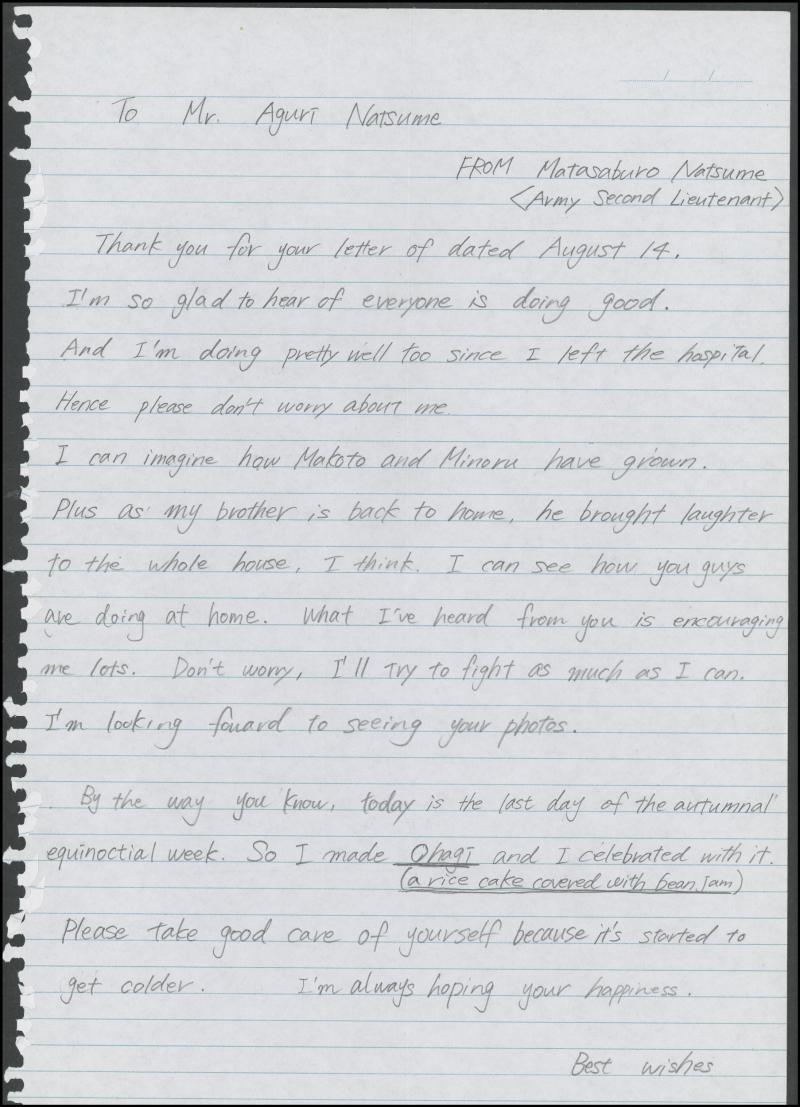 To Mr. Aguri Natsume
FROM Matasaburo Natsume
<Army Second Lieutenant>
Thank you for your letter of dated August 14.
I'm so glad to hear of everyone is doing good.
And I'm doing pretty well too since I left the hospital.
Hence please don't worry about me.
I can imagine how Makoto and Minoru have grown.
Plus as my brother is back to home, he brought laughter
to the whole house, I think. I can see how you guys
are doing at home. What I've heard from you is encouraging
me lots. Don't worry, I'll try to fight as much as I can.
I'm looking fouard to seeing your photos.
By the way you know, today is the last day of the autumnal
equinoctial week. So I made Ohagi and I celebrated with it.
(a rice cake covered with bean jam)
Please take good care of yourself because it's started to
get colder. I'm always hoping your happiness.
Best wishes